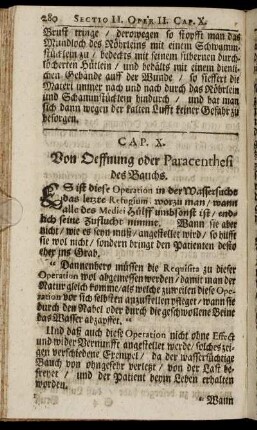 280 SECTIO II. OPER II. CAP. X.
Brust tringe / derowegen so stopfft man das
Mundloch des Röhrleins mit einem Schwamm-
stücklein zu / bedeckts mit seinem silbernen durch-
löcherten Hütlein / und behälts mit einem dienli-
chen Gebände auff der Wunde / so siessert die
Materi immer nach und nach durch das Röhrlein
und Schammstücklein hindurch / und hat man
sich dann wegen der kalten Lufft keiner Gefahr zu
besorgen.
CAP. X.
Von Oeffnung oder Paracenthesi
des Bauchs.
ES ist diese Operation in der Wassersuche
das letzte Refugium, worzu man / wann
alle des Medici Hülff umbsonst ist / end-
lich seine Zuflucht nimmt. Wann sie aber
nicht / wie es seyn muß / angestellet wird / so hilfft
sie wol nicht / sondern bringt den Patienten desto
eher ins Grab.
" Dannenhero müssen die Requisita zu dieser
Operation wol abgemessen werden / damit man der
Natur gleich komme / als welche zuweilen diese Ope-
ration vor sich selbsten anzustellen pfleget / wann sie
durch den Nabel oder durch die geschwollene Beine
das Wasser abzapffet. "
Und daß auch diese Operation nicht ohne Effect
und wider Vernunfft angestellet werde / solches zei-
gen verschiedene Exempel / da der wassersüchtige
Bauch von ohngefehr verletzt / von der Last be-
freyet / und der Patient beym Leben erhalten
worden.
" Wann